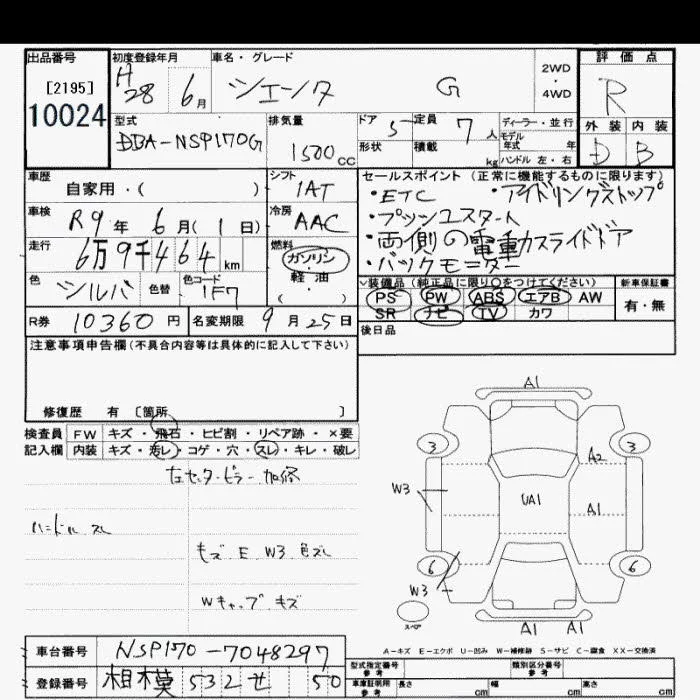 出品番号
[2195]
10024
初度登録年月
H28 6月
車名・グレード
シエンタ G
2WD
・
4WD
評価点
R
外装 内装
D B
型式
DBA-NSP170G
排気量
1500cc
ドア
5
定員
7人
形状
積載
kg
ディーラー・並行
モデル
年式 年
ハンドル 左・右
車歴
自家用・( )
シフト
IAT
セールスポイント (正常に機能するものに限ります)
・ETC ・アイドリングストップ
・プッシュスタート
・両側の電動スライドドア
・バックモニター
車検
R9年 6月( 1日)
冷房
AAC
走行
6万9千464km
燃料
ガソリン
・
軽油
色
シルバ
色替
色コード
1F7
装備品 (純正品に限り○をつけてください)
PS PW ABS エアB AW
SR ナビ TV カワ
新車保証書
有・無
R券 10360円
名変期限 9月25日
後日品
注意事項申告欄(不具合内容等は具体的に記入して下さい)
修復歴 有 〔箇所 〕
検査員 FW キズ・飛石・ヒビ割・リペア跡・×要
記入欄 内装 キズ・汚レ・コゲ・穴・スレ・キレ・破レ
左センターピラー 加修
ハンドル スレ
キズ E W3 色ズレ
Wキャップ キズ
A1
3 3
A2
W3
UA1
A1
6 6
W3
スペア
A1 A1
A-キズ E-エクボ U-凹み W-補修跡 S-サビ C-腐食 XX-交換済
車台番号 NSP170-7048297
登録番号 相模 532 せ 50
型式指定番号
参考
類別区分番号
参考
車庫証明用
参考
長さ cm 幅 cm 高さ cm